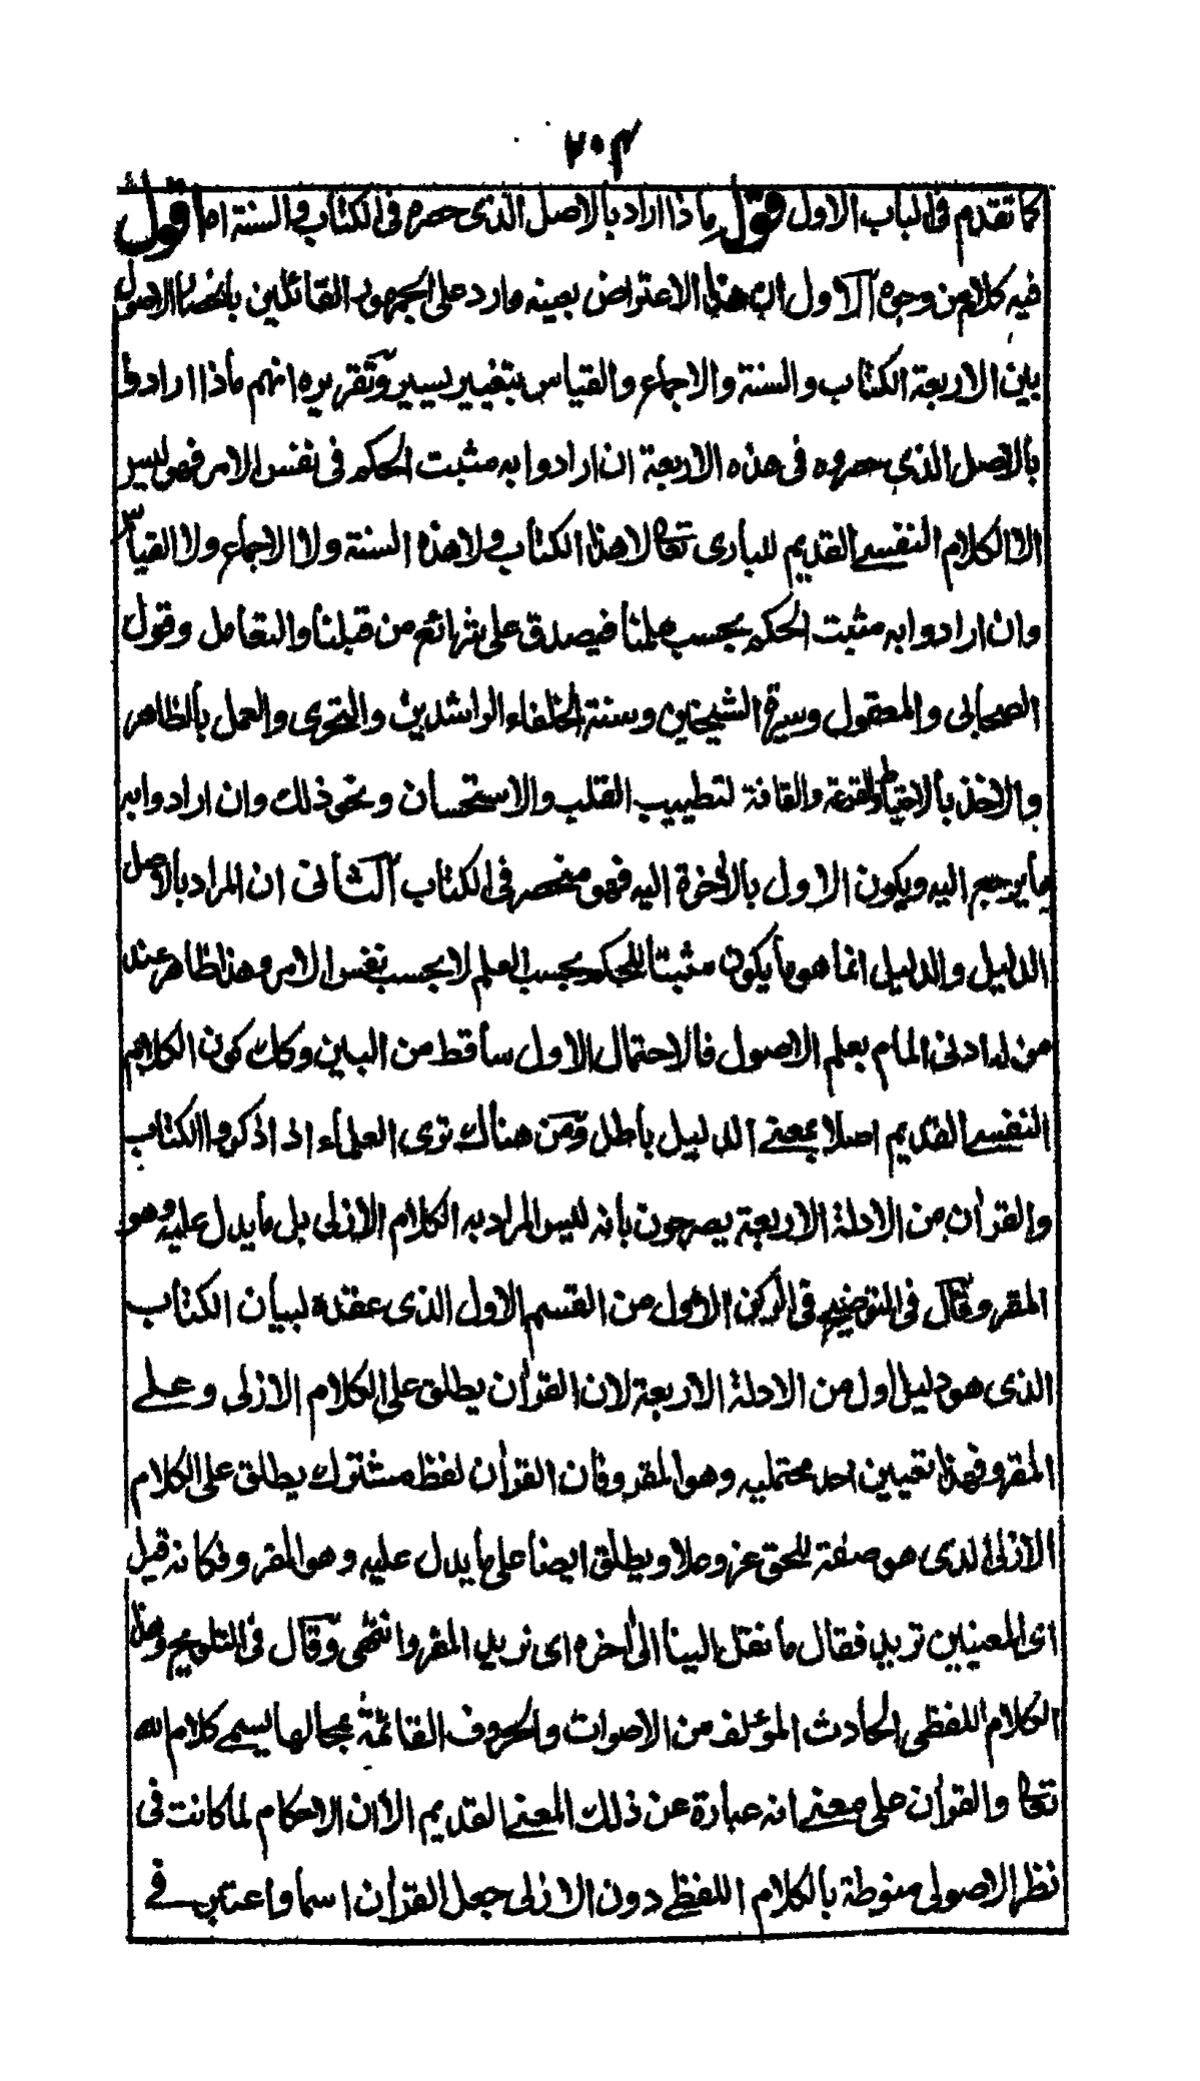 ٢٠٣
كما تقدم فى الباب الاول قوله ماذا اراد بالاصل الذى حصره فى الكتاب والسنة اه اقول
فيه كلام من وجوه الاول ان هذا الاعتراض بعينه وارد على الجمهور القائلين بانحصار الاصول
بين الاربعة الكتاب والسنة والاجماع والقياس بتغيير يسير وتقريره انهم ماذا ارادوا
بالاصل الذى حصروه فى هذه الاربعة ان ارادوا به مثبت الحكم فى نفس الامر فهو ليس
الا الكلام النفسے القديم للبارى تعالى لا هذا الكتاب ولا هذه السنة ولا الاجماع ولا القياس
وان ارادوا به مثبت الحكم بحسب علمنا فيصدق على شرائع من قبلنا والتعامل وقول
الصحابى والمعقول وسيرة الشيخين وسنة الخلفاء الراشدين والتحرى والعمل بالظاهر
والاخذ بالاحتياط والقرعة والقافة لتطييب القلب والاستحسان ونحو ذلك وان ارادوا به
ما يرجع اليه ويكون الاول بالاخرة اليه فهو منحصر فى الكتاب الثانى ان المراد بالاصل
الدليل والدليل انما هو ما يكون مثبتا للحكم بحسب العلم لا بحسب نفس الامر وهذا ظاهر عند
من له ادنى المام بعلم الاصول فالاحتمال الاول ساقط من البين وكان كون الكلام
النفسے القديم اصلا بمعنے الدليل باطل ومن هناك ترى العلماء اذا ذكروا الكتاب
والقرآن من الادلة الاربعة يصرحون بانه ليس المراد به الكلام الازلى بل ما يدل عليه وهو
المقرو قال فى التوضيح فى الركن الاول من القسم الاول الذى عقده لبيان الكتاب
الذى هو دليل اول من الادلة الاربعة لان القرآن يطلق على الكلام الازلى وعلے
المقرو فهذا تعيين احد محتمليه وهو المقرو فان القرآن لفظ مشترك يطلق على الكلام
الازلى الذى هو صفة للحق عز وعلا ويطلق ايضا على ما يدل عليه وهو المقرو فكانه قيل
اى المعنيين تريد فقال ما نقل الينا الى آخره اى نريد المقرو انتهى وقال فى التلويح وهذا
الكلام اللفظى الحادث المؤلف من الاصوات والحروف القائمة بمحالها يسمے كلام الله
تعالى والقرآن على معنے انه عبارة عن ذلك المعنے القديم الا ان الاحكام لما كانت فى
نظر الاصولى منوطة بالكلام اللفظے دون الازلى جعل القرآن اسما واعتبر فے